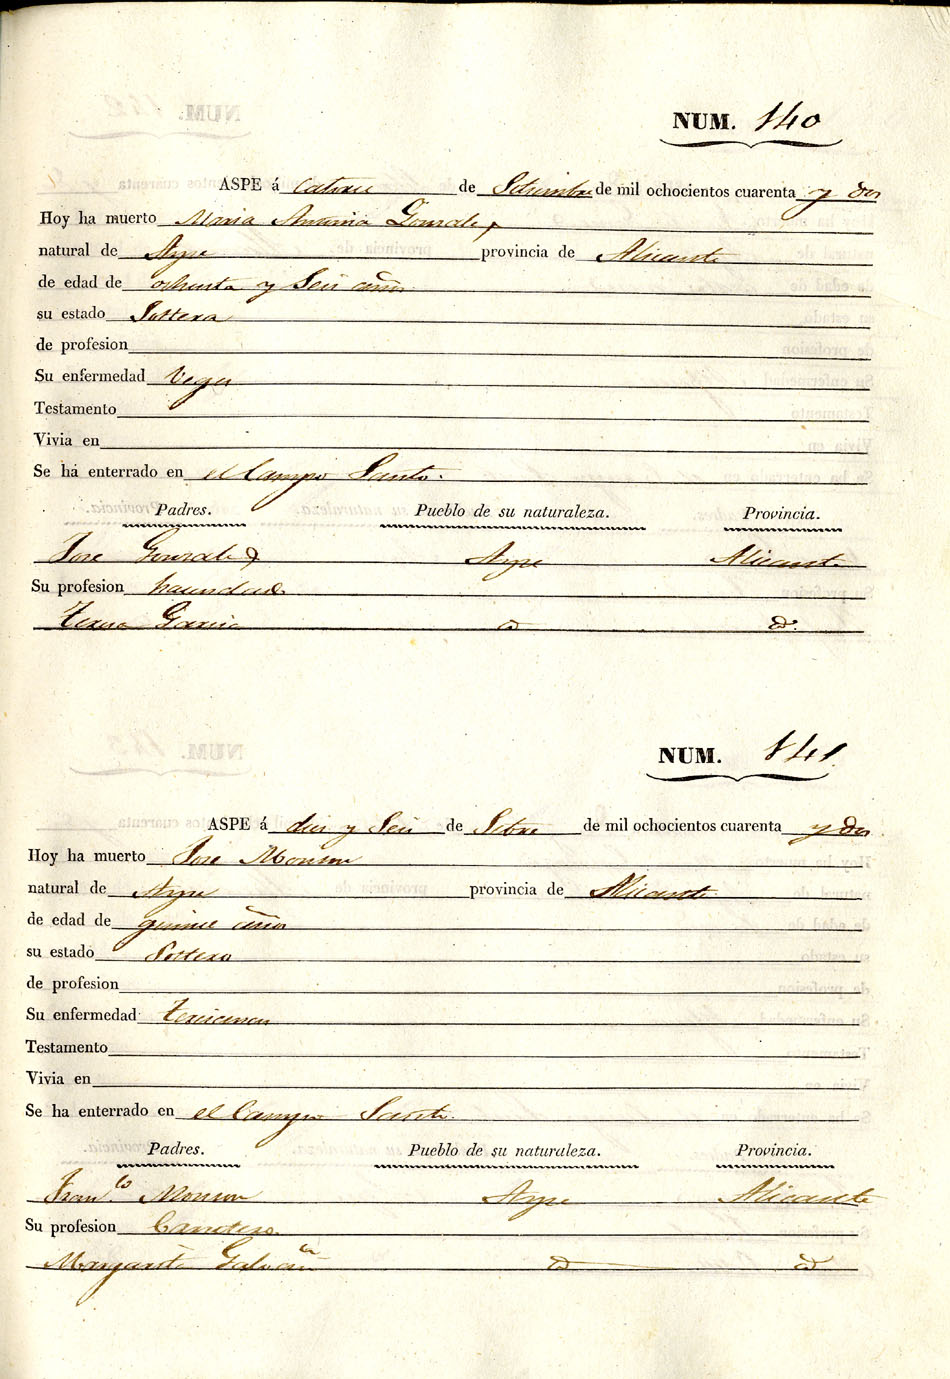 NUM. 140
ASPE á Catorse de Setiembre de mil ochocientos cuarenta y dos
Hoy ha muerto Maria Antonia Gonzalez
natural de Aspe provincia de Alicante
de edad de ochenta y Seis años
su estado Soltera
de profesion
Su enfermedad Veges
Testamento
Vivia en
Se há enterrado en el Campo Santo.
Padres. Pueblo de su naturaleza. Provincia.
Jose Gonzalez Aspe Alicante
Su profesion hacendado
Teresa Garcia id id.
NUM. 141.
ASPE á dies y Seis de Setbre de mil ochocientos cuarenta y dos
Hoy ha muerto Jose Monzon
natural de Aspe provincia de Alicante.
de edad de quince años
su estado Soltero
de profesion
Su enfermedad
Testamento
Vivia en
Se ha enterrado en el Campo Santo.
Padres. Pueblo de su naturaleza. Provincia.
Franco Monzon Aspe Alicante
Su profesion Carretero.
Margarita Galvañ id id